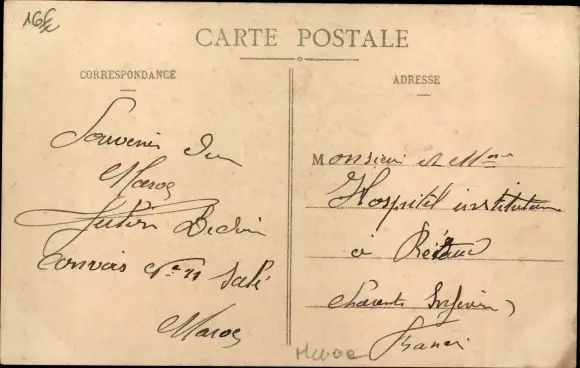 16
CARTE POSTALE
CORRESPONDANCE
Souvenir du
Maroc
Julien
convois Salé
Maroc
ADRESSE
Monsieur et Mme
Hospitel instituteur
à
Charente Inférieure
France
Maroc